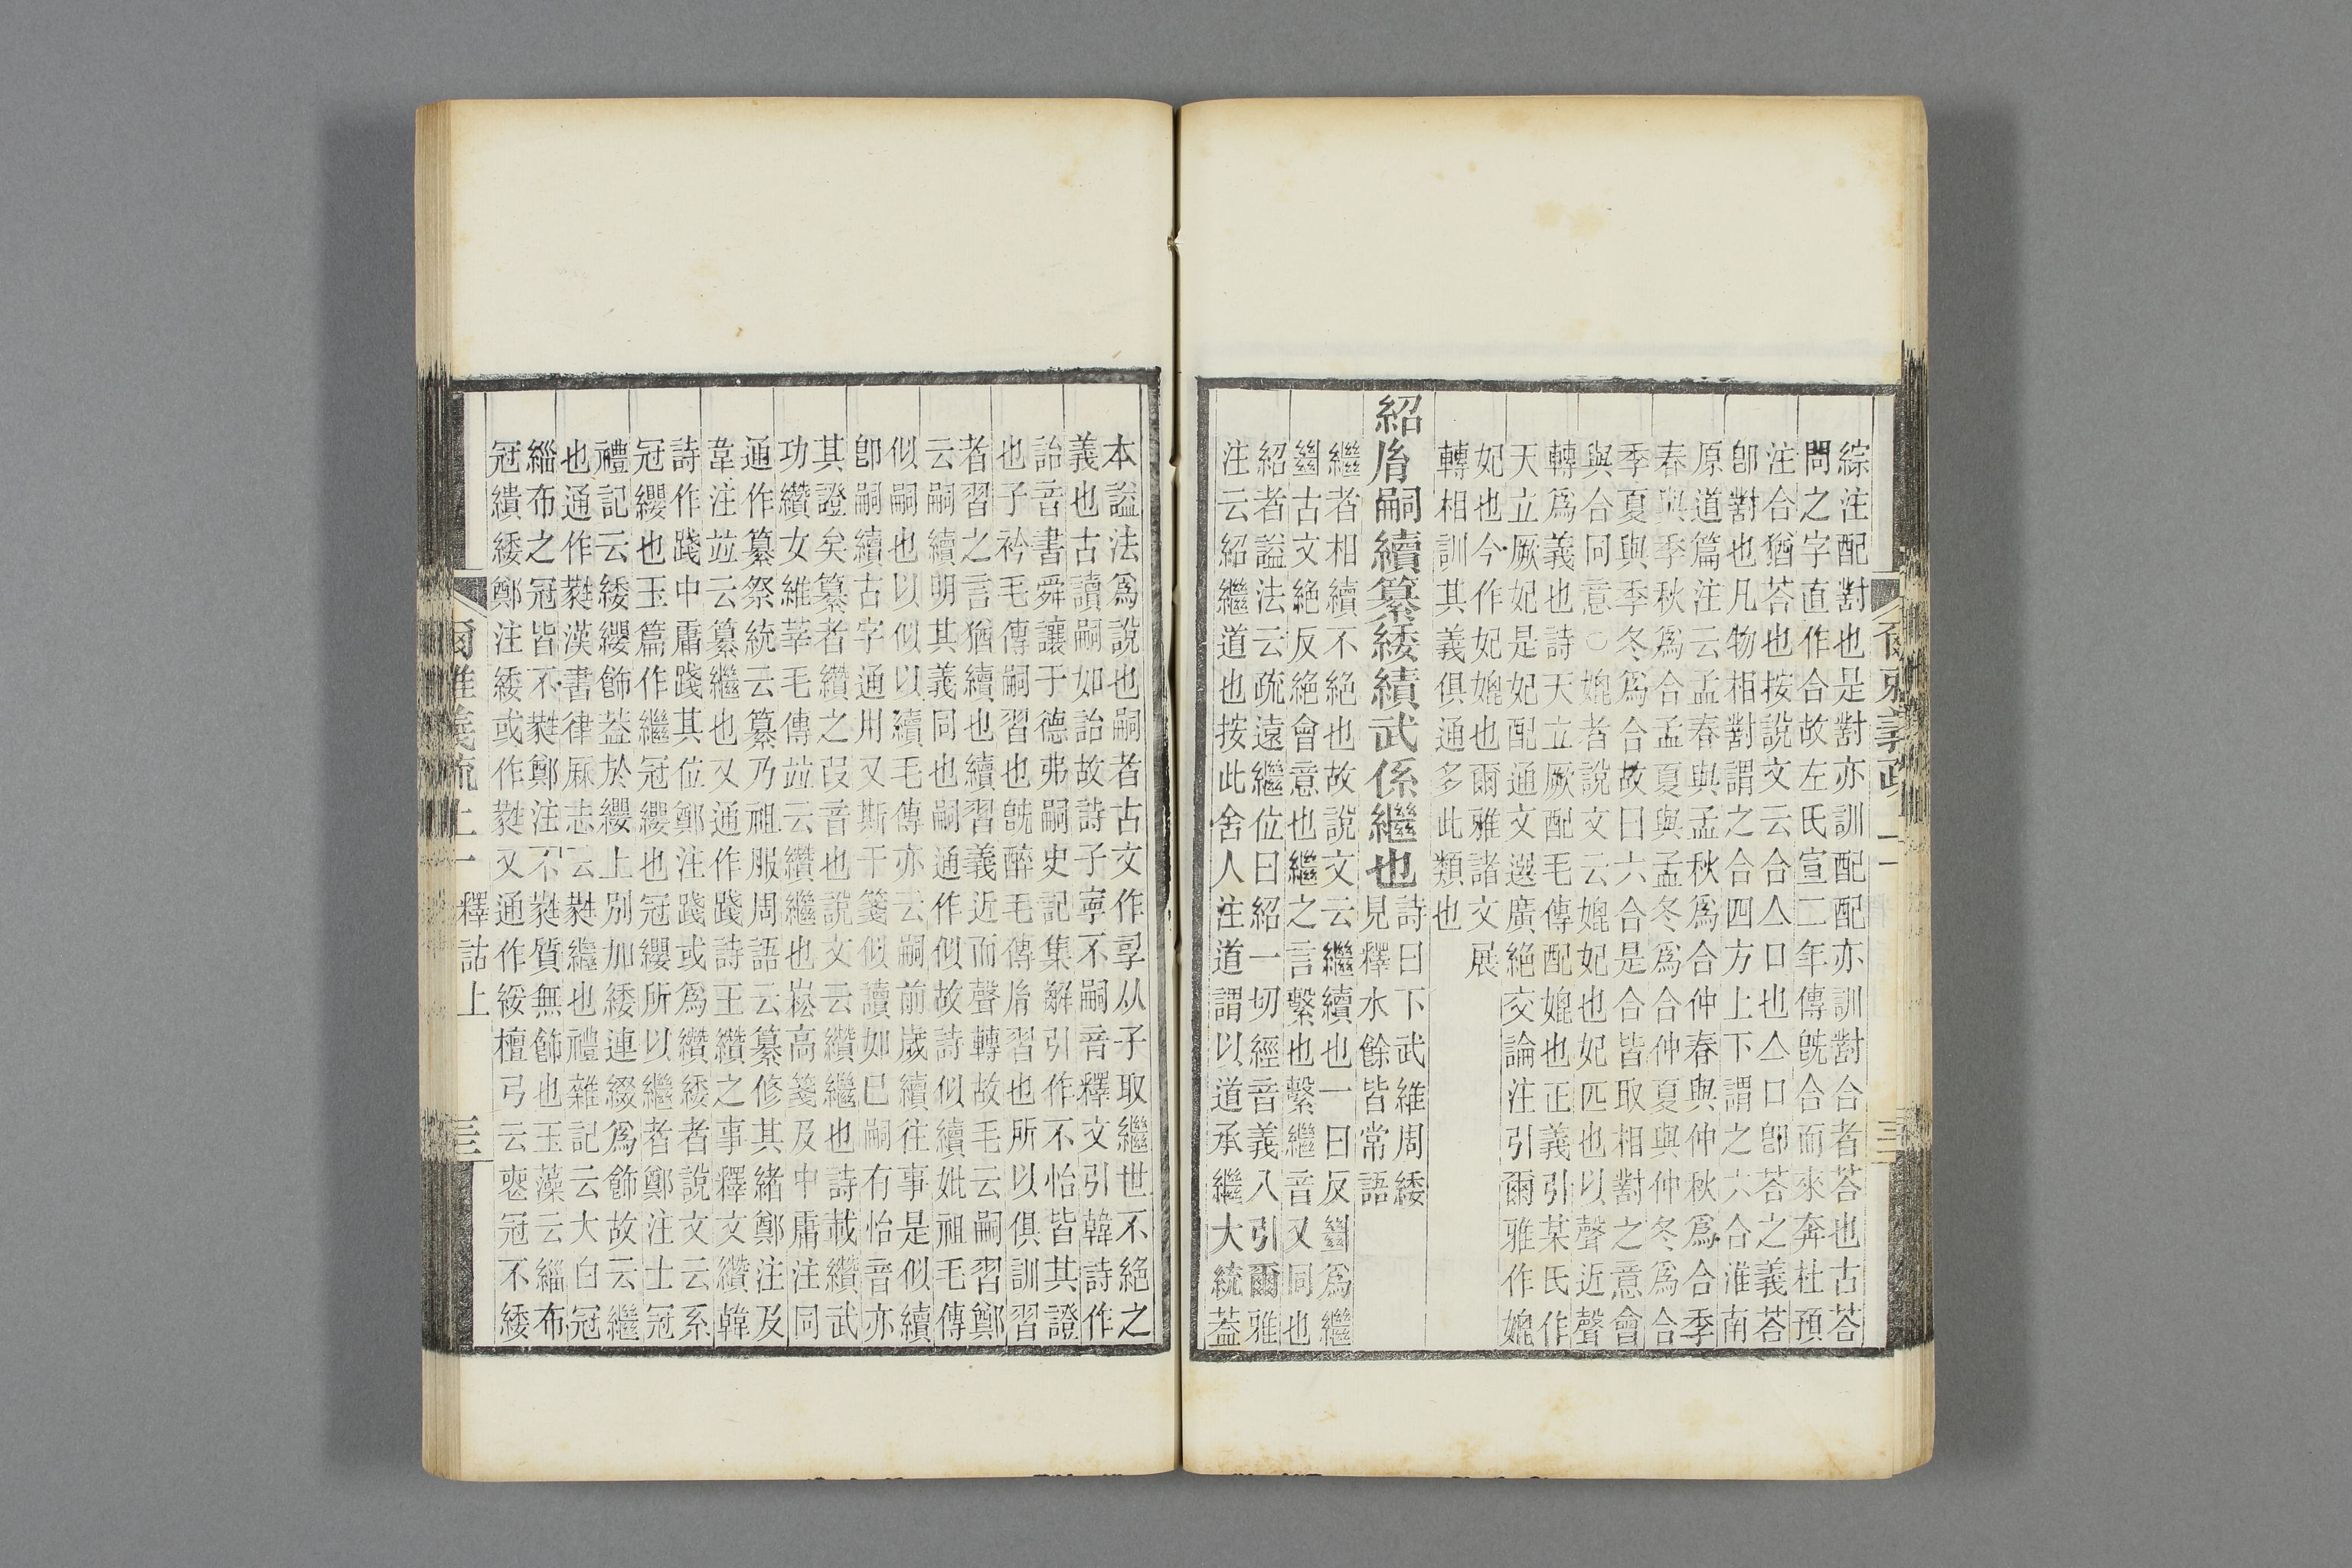 綜注配對也是對亦訓配配亦訓對合者荅也古荅
問之字直作合故左氏宣二年傳旣合而來奔杜預
注合猶荅也按說文云合亼口也亼口卽荅之義荅
卽對也凡物相對謂之合四方上下謂之六合淮南
原道篇注云孟春與孟秋爲合仲春與仲秋爲合季
春與季秋爲合孟夏與孟冬爲合仲夏與仲冬爲合
季夏與季冬爲合故曰六合是合皆取相對之意會
與合同意○媲者說文云媲妃也妃匹也以聲近聲
轉爲義也詩天立厥配毛傳配媲也正義引某氏作
天立厥妃是妃配通文選廣絶交論注引爾雅作媲
妃也今作妃媲也爾雅諸文展
轉相訓其義俱通多此類也
紹胤嗣續纂緌績武係繼也
詩曰下武維周緌
見釋水餘皆常語
繼者相續不絶也故說文云繼續也一曰反𢇍爲繼
𢇍古文絶反絶會意也繼之言繫也繫繼音又同也
紹者謚法云疏遠繼位曰紹一切經音義八引爾雅
注云紹繼道也按此舍人注道謂以道承繼大統葢
爾雅義疏 上一 三
本謚法爲說也嗣者古文作孠从子取繼世不絶之
義也古讀嗣如詒故詩子寧不嗣音釋文引韓詩作
詒音書舜讓于德弗嗣史記集解引作不怡皆其證
也子衿毛傳嗣習也旣醉毛傳胤習也所以俱訓習
者習之言猶續也續習義近而聲轉故毛云嗣習鄭
云嗣續明其義同也嗣通作似故詩似續妣祖毛傳
似嗣也以似以續毛傳亦云嗣前歲續往事是似續
卽嗣續古字通用又斯干箋似讀如巳嗣有怡音亦
其證矣纂者纘之叚音也說文云纘繼也詩載纘武
功纘女維莘毛傳竝云纘繼也崧高箋及中庸注同
通作纂祭統云纂乃祖服周語云纂修其緒鄭注及
韋注竝云纂繼也又通作踐詩王纘之事釋文纘韓
詩作踐中庸踐其位鄭注踐或爲纘緌者說文云系
冠纓也玉篇作繼冠纓也冠纓所以繼者鄭注士冠
禮記云緌纓飾葢於纓上別加緌連綴爲飾故云繼
也通作蕤漢書律厤志云蕤繼也禮雜記云大白冠
緇布之冠皆不蕤鄭注不蕤質無飾也玉藻云緇布
冠繢緌鄭注緌或作蕤又通作綏檀弓云喪冠不緌
爾雅義疏 上一 釋詁上 三